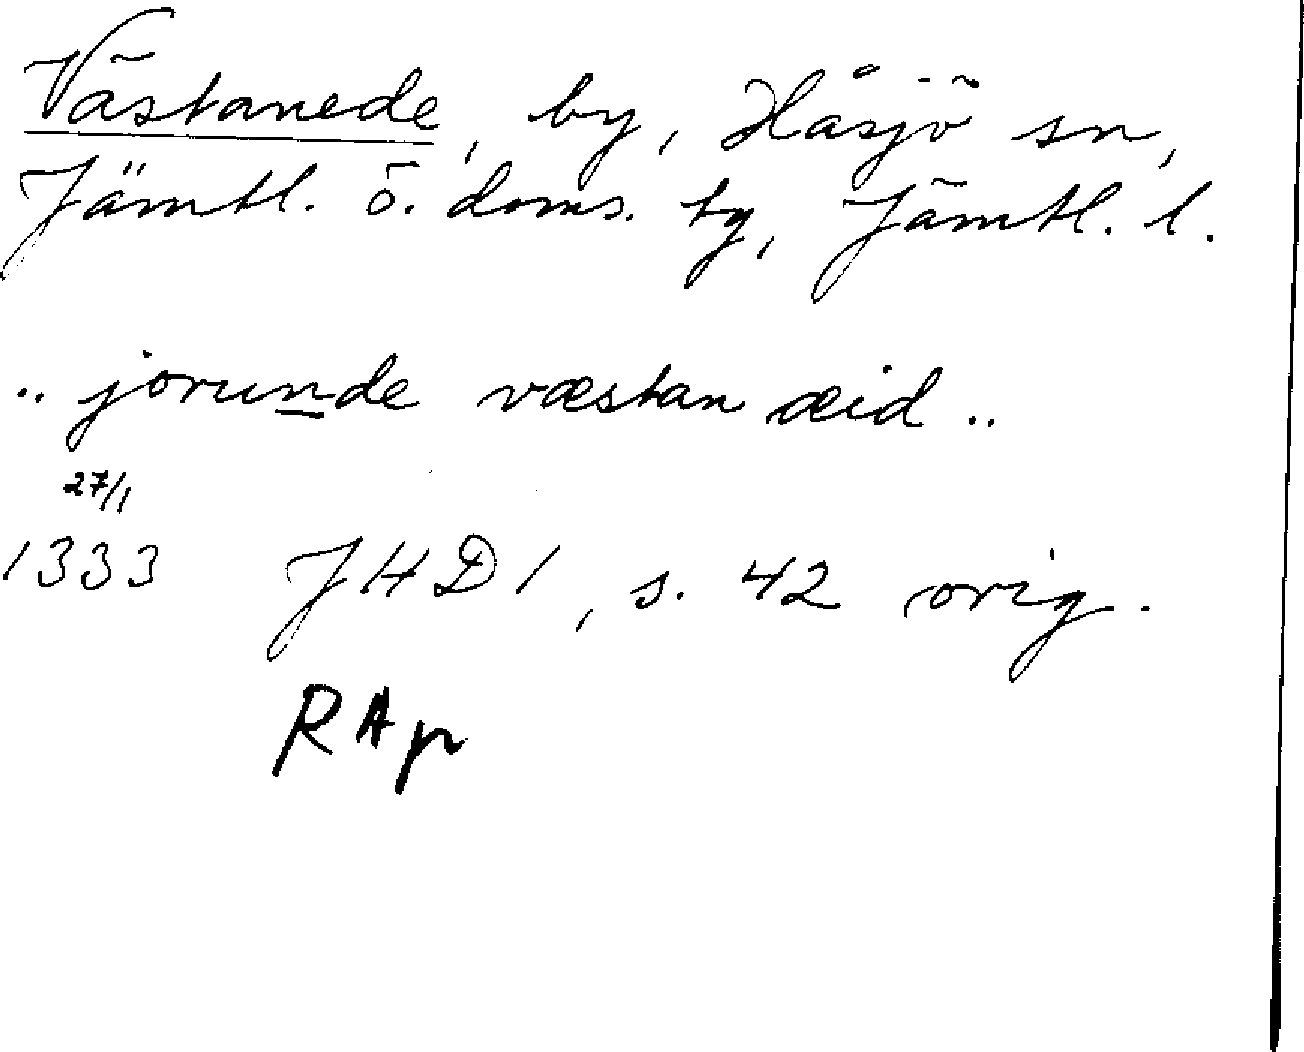 Västanede, by, Håsjö sn,
Jämtl. ö. doms. tg, Jämtl. l.
.. jorunde væstan æid ..
27/1
1333 JHD1, s. 42 orig.
RAp